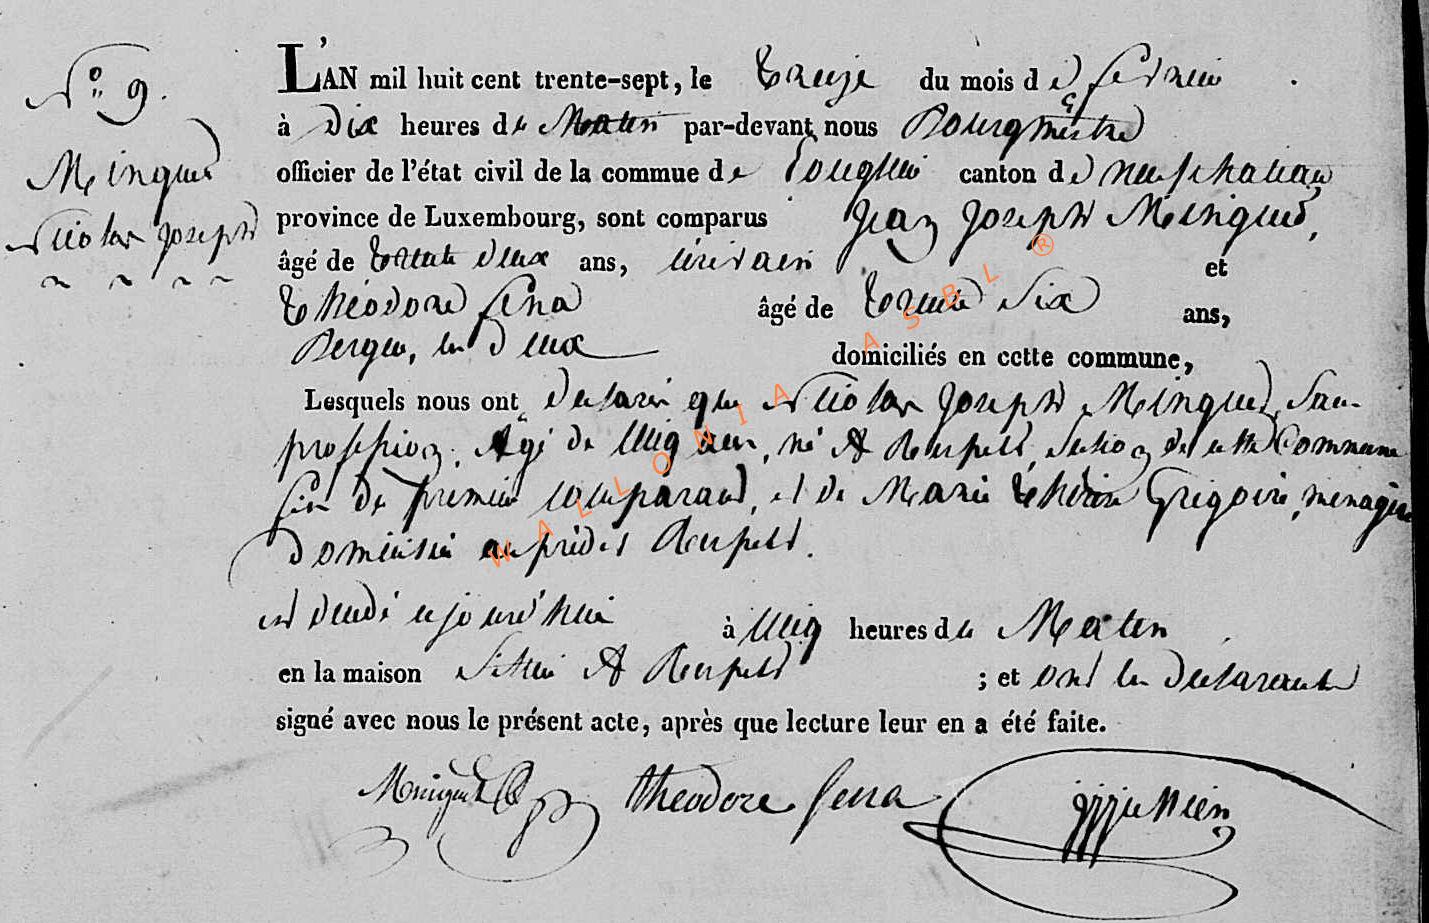 N° 9.
Minguet
Nicolas Joseph
L'AN mil huit cent trente-sept, le treize du mois de fevrier
à dix heures du Matin par-devant nous Bourgmestre
officier de l'état civil de la commue de Longlier canton de neufchateau
province de Luxembourg, sont comparus Jean Joseph Minguet,
âgé de trente deux ans, écrivain et
théodore fena âgé de trente six ans,
Berger, les deux domiciliés en cette commune,
Lesquels nous ont declaré que Nicolas Joseph Minguet, sans
profession, Agé de cinq ans, né A Respelt, section de cette Commune
fils du premier comparant, et de Marie thérèse Grégoire, menagère
domiciliée au prédit Respelt.
est decedé cejourd'hui à cinq heures du Matin
en la maison sittuée A Respelt ; et ont les declarants
signé avec nous le présent acte, après que lecture leur en a été faite.
Minguet théodore fena
WALLONIA ASBL ®